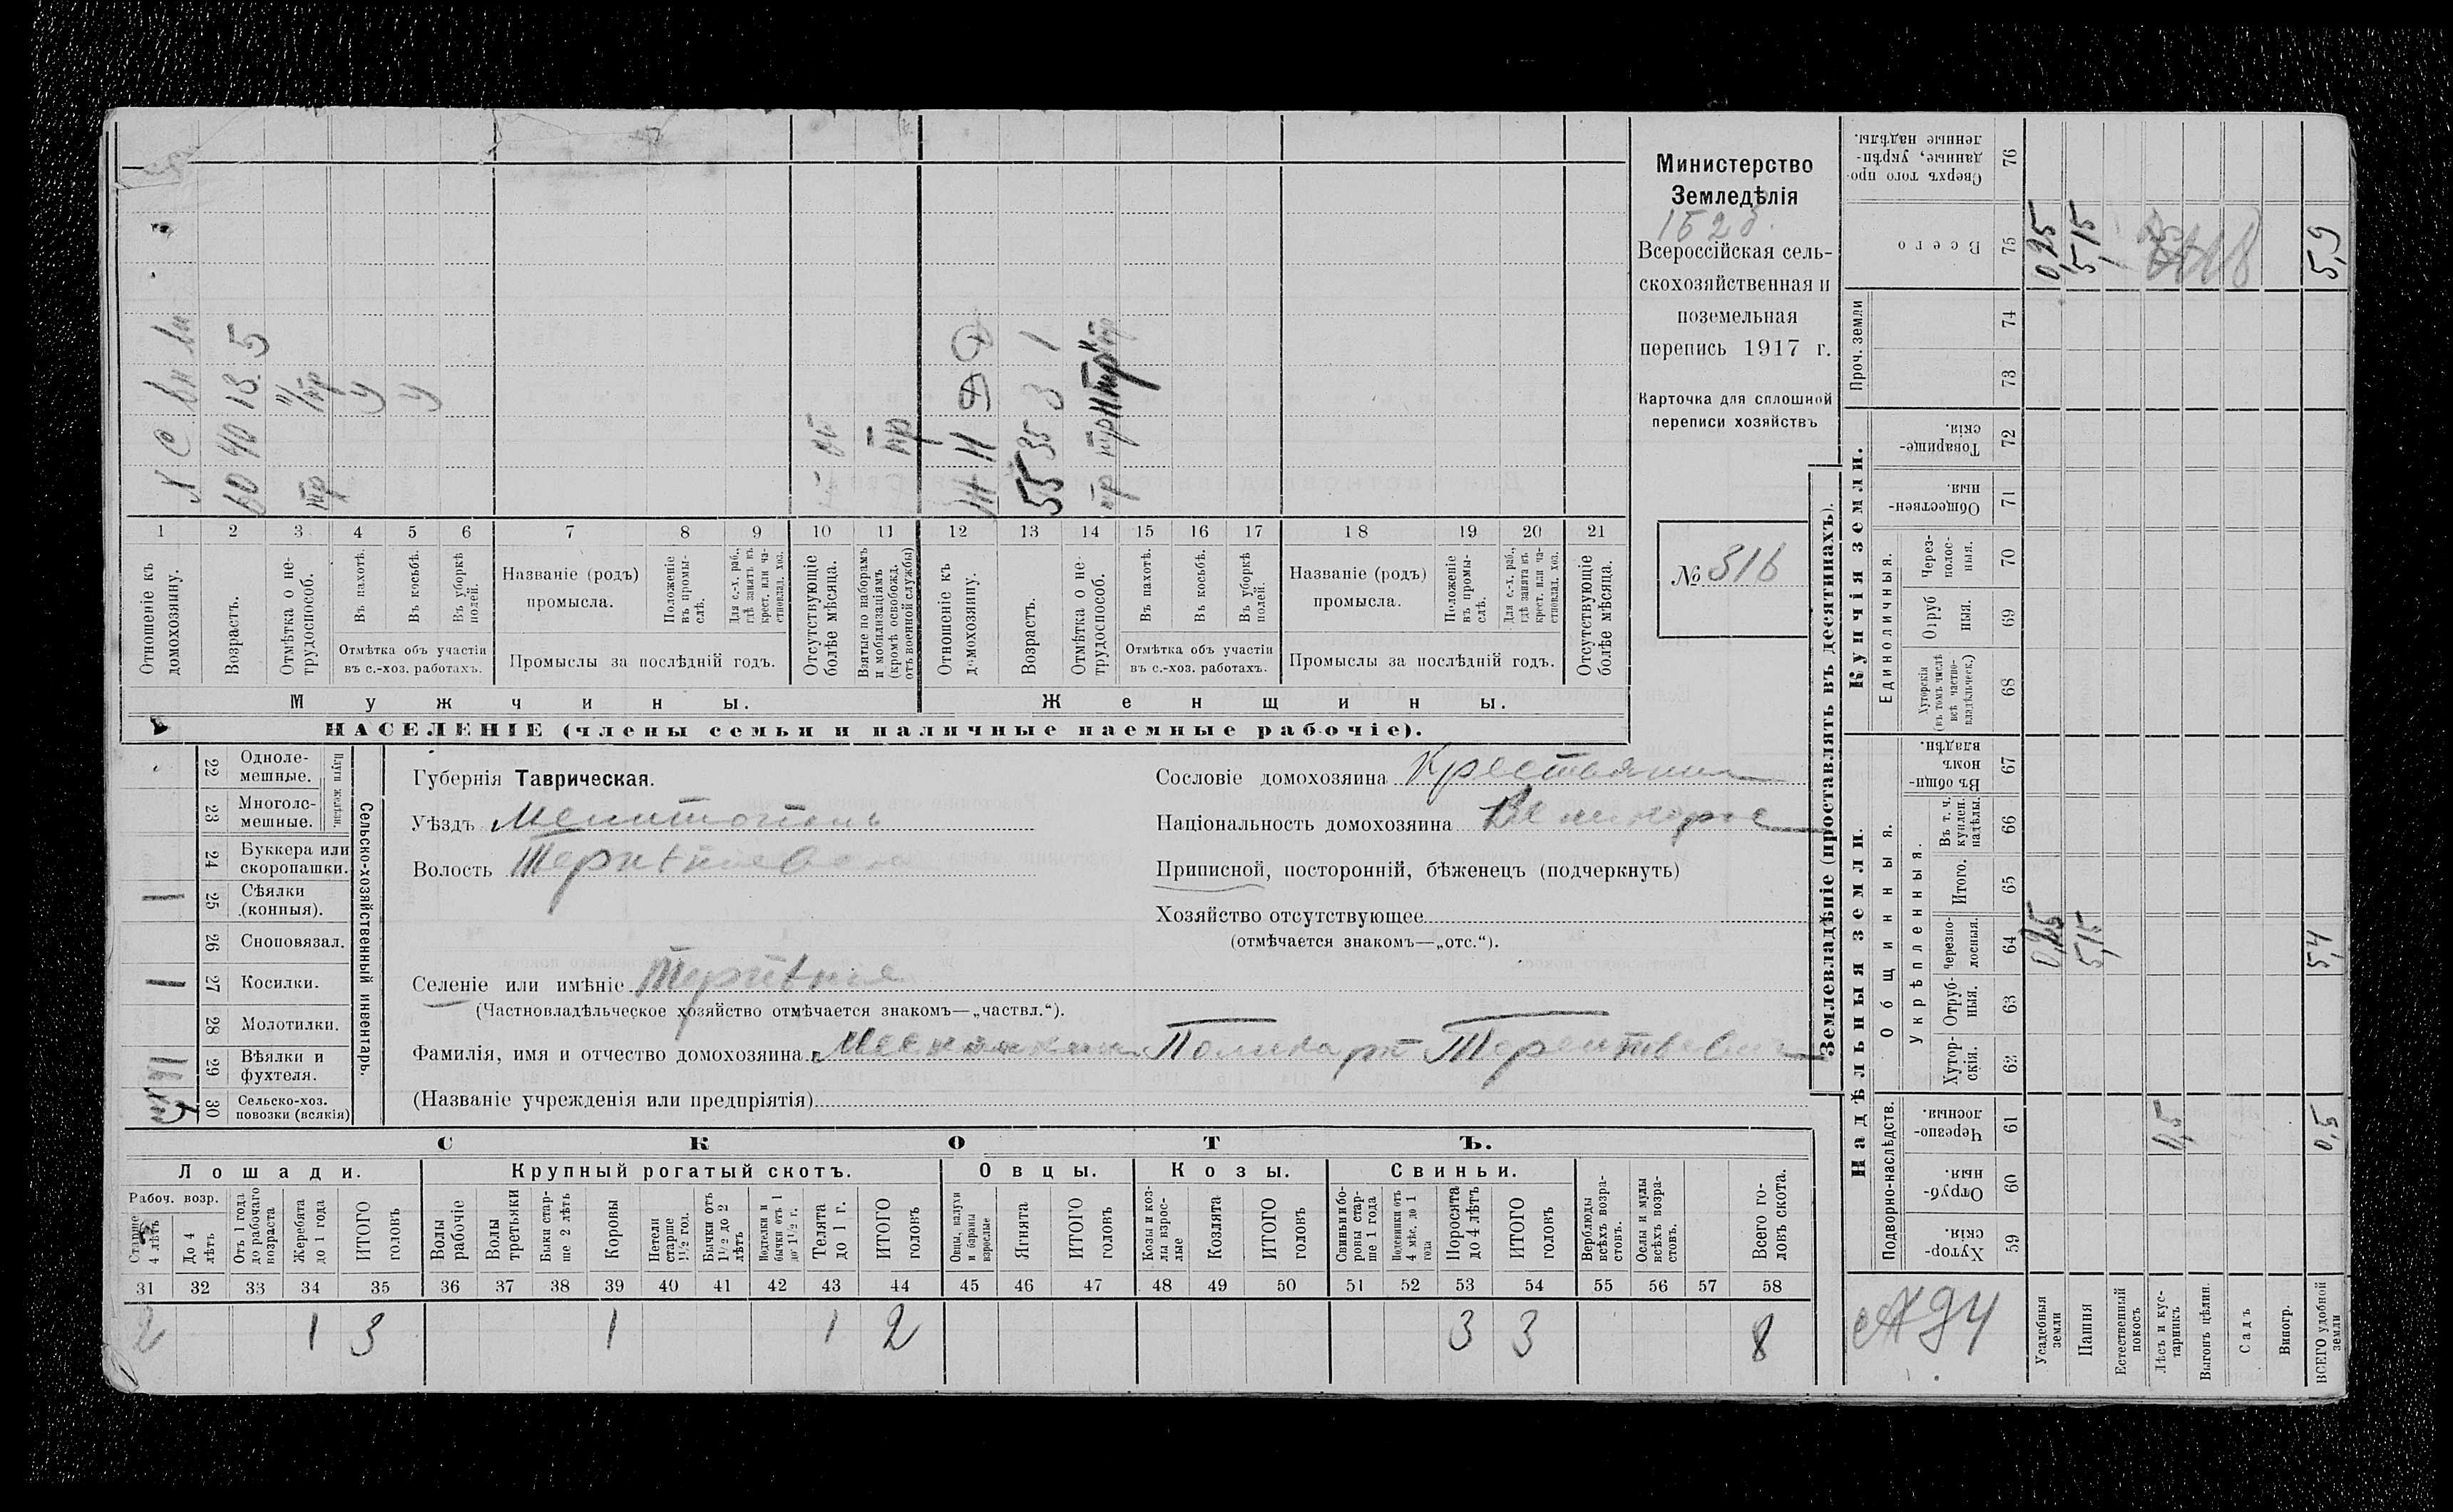 Министерство
Земледѣлія
Всероссійская сель-
скохозяйственная и
поземельная
перепись 1917 г.
Карточка для сплошной
переписи хозяйствъ
№ 316
Х С Вн Вн
60 40 13 5
Ж Н Д
55 35 3 1
1 2 3 4 5 6 7 8 9 10 11 12 13 14 15 16 17 18 19 20 21
Отношеніе къ
домохозяину.
Возрастъ.
Отмѣтка о не-
трудоспособ.
Въ пахотѣ.
Въ косьбѣ.
Въ уборкѣ
полей.
Отмѣтка объ участіи
въ с.-хоз. работахъ.
Названіе (родъ)
промысла.
Положеніе
въ промы-
слѣ.
Для с.-х. раб.,
гдѣ занятъ въ
крест. или ча-
стновлад. хоз.
Промыслы за послѣдній годъ.
Отсутствующіе
болѣе мѣсяца.
Взятые по наборамъ
и мобилизаціямъ
(кромѣ освобожд.
отъ военной службы)
Отношеніе къ
домохозяину.
Возрастъ.
Отмѣтка о не-
трудоспособ.
Въ пахотѣ.
Въ косьбѣ.
Въ уборкѣ
полей.
Отмѣтка объ участіи
въ с.-хоз. работахъ.
Названіе (родъ)
промысла.
Положеніе
въ промы-
слѣ.
Для с.-х. раб.,
гдѣ занята въ
крест. или ча-
стновлад. хоз.
Промыслы за послѣдній годъ.
Отсутствующіе
болѣе мѣсяца.
Мужчины.
Женщины.
НАСЕЛЕНІЕ (члены семьи и наличные наемные рабочіе).
22 Одноле-
мешные.
23 Многоле-
мешные.
Плуги желѣзн.
24 Буккера или
скоропашки.
1 25 Сѣялки
(конныя).
26 Сноповязал.
1 27 Косилки.
28 Молотилки.
29 Вѣялки и
фухтеля.
30 Сельско-хоз.
повозки (всякія)
Сельско-хозяйственный инвентарь.
Губернія Таврическая.
Уѣздъ Мелитополь
Волость
Селеніе или имѣніе
(Частновладѣльческое хозяйство отмѣчается знакомъ—„частвл.“).
Фамилія, имя и отчество домохозяина Поликарп Терентьевич
(Названіе учрежденія или предпріятія)
Сословіе домохозяина Крестьянин
Національность домохозяина Великорус
Приписной, посторонній, бѣженецъ (подчеркнуть)
Хозяйство отсутствующее
(отмѣчается знакомъ—„отс.“).
СКОТЪ.
Лошади.
Крупный рогатый скотъ.
Овцы.
Козы.
Свиньи.
Рабоч. возр.
Старше
4 лѣтъ
До 4
лѣтъ
Отъ 1 года
до рабочаго
возраста
Жеребята
до 1 года
ИТОГО
головъ
Волы
рабочіе
Волы
третьяки
Быки стар-
ше 2 лѣтъ
Коровы
Нетели
старше
1½ год.
Бычки отъ
1½ до 2
лѣтъ
Подтелки и
бычки отъ 1
до 1½ г.
Телята
до 1 г.
ИТОГО
головъ
Овцы, валухи
и бараны
взрослые
Ягнята
ИТОГО
головъ
Козы и коз-
лы взрос-
лые
Козлята
ИТОГО
головъ
Свиньи и бо-
ровы стар-
ше 1 года
Подсвинки отъ
4 мѣс. до 1
года
Поросята
до 4 лѣтъ
ИТОГО
головъ
Верблюды
всѣхъ возра-
стовъ.
Ослы и мулы
всѣхъ возра-
стовъ.
Всего го-
ловъ скота.
31 32 33 34 35 36 37 38 39 40 41 42 43 44 45 46 47 48 49 50 51 52 53 54 55 56 57 58
2 1 3 1 1 2 3 3 8
Землевладѣніе (проставлять въ десятинахъ).
Надѣльныя земли.
Купчія земли.
Проч. земли
Подворно-наслѣдств.
Общинныя.
Укрѣпленныя.
Единоличныя.
Хутор-
скія.
59
Отруб-
ныя.
60
Черезпо-
лосныя.
61
Хутор-
скія.
62
Отруб-
ныя.
63
Черезпо-
лосныя.
64
Итого.
65
Въ т. ч.
куплен.
надѣлы.
66
Въ общи-
номъ
владѣн.
67
Хуторскія
(въ томъ числѣ
всѣ частно-
владѣльческ.)
68
Отруб
ныя.
69
Через-
полос-
ныя.
70
Обществен-
ныя.
71
Товарище-
скія.
72
73
74
Всего
75
Сверхъ того про-
данные, укрѣп-
ленные надѣлы.
76
Усадебныя
земли
0,25 0,25
Пашня
5,15 5,15
Естественный
покосъ
Лѣсъ и кус-
тарникъ
0,5
Выгонъ цѣлин.
Садъ
Виногр.
ВСЕГО удобной
земли
0,5 5,4 5,9